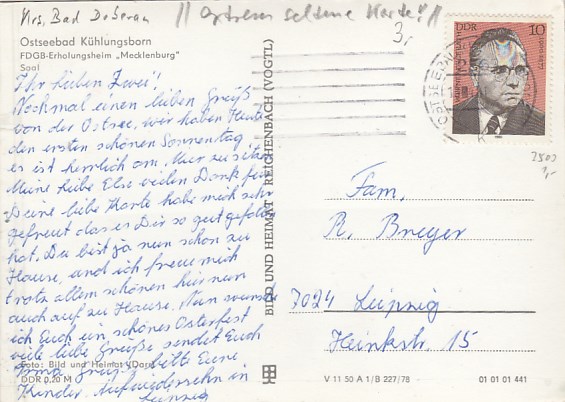 Krs. Bad Doberan
// extrem seltene Karte! //
3,-
Ostseebad Kühlungsborn
FDGB-Erholungsheim „Mecklenburg"
Saal
Ihr lieben Zwei!
Nochmal einen lieben Gruß
von der Ostsee, wir haben heute
den ersten schönen Sonntag,
es ist herrlich am Meer zu sitzen
Meine liebe Else vielen Dank für
Deine liebe Karte habe mich sehr
gefreut das es Dir so gut gefallen
hat. Du bist ja nun schon zu
Hause, und ich freue mich
trotz allem schönen hier nun
auch auf zu Hause. Nun wünsche
ich Euch ein schönes Osterfest
viele liebe Grüße sendet Euch
Irma Grüß bitte Eure
Kinder Aufwiedersehn in
Leipzig
Foto: Bild und Heimat (Darr)
DDR 0,20 M
BILD UND HEIMAT REICHENBACH (VOGTL)
DDR 10
OSTSEEBAD
Fam.
R. Breyer
7024 Leipzig
Heinkstr. 15
V 11 50 A 1/B 227/78
01 01 01 441